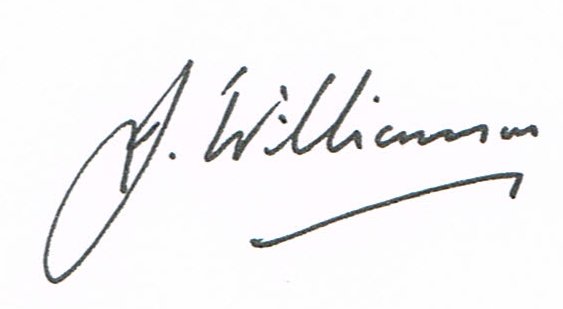 J. Williamson